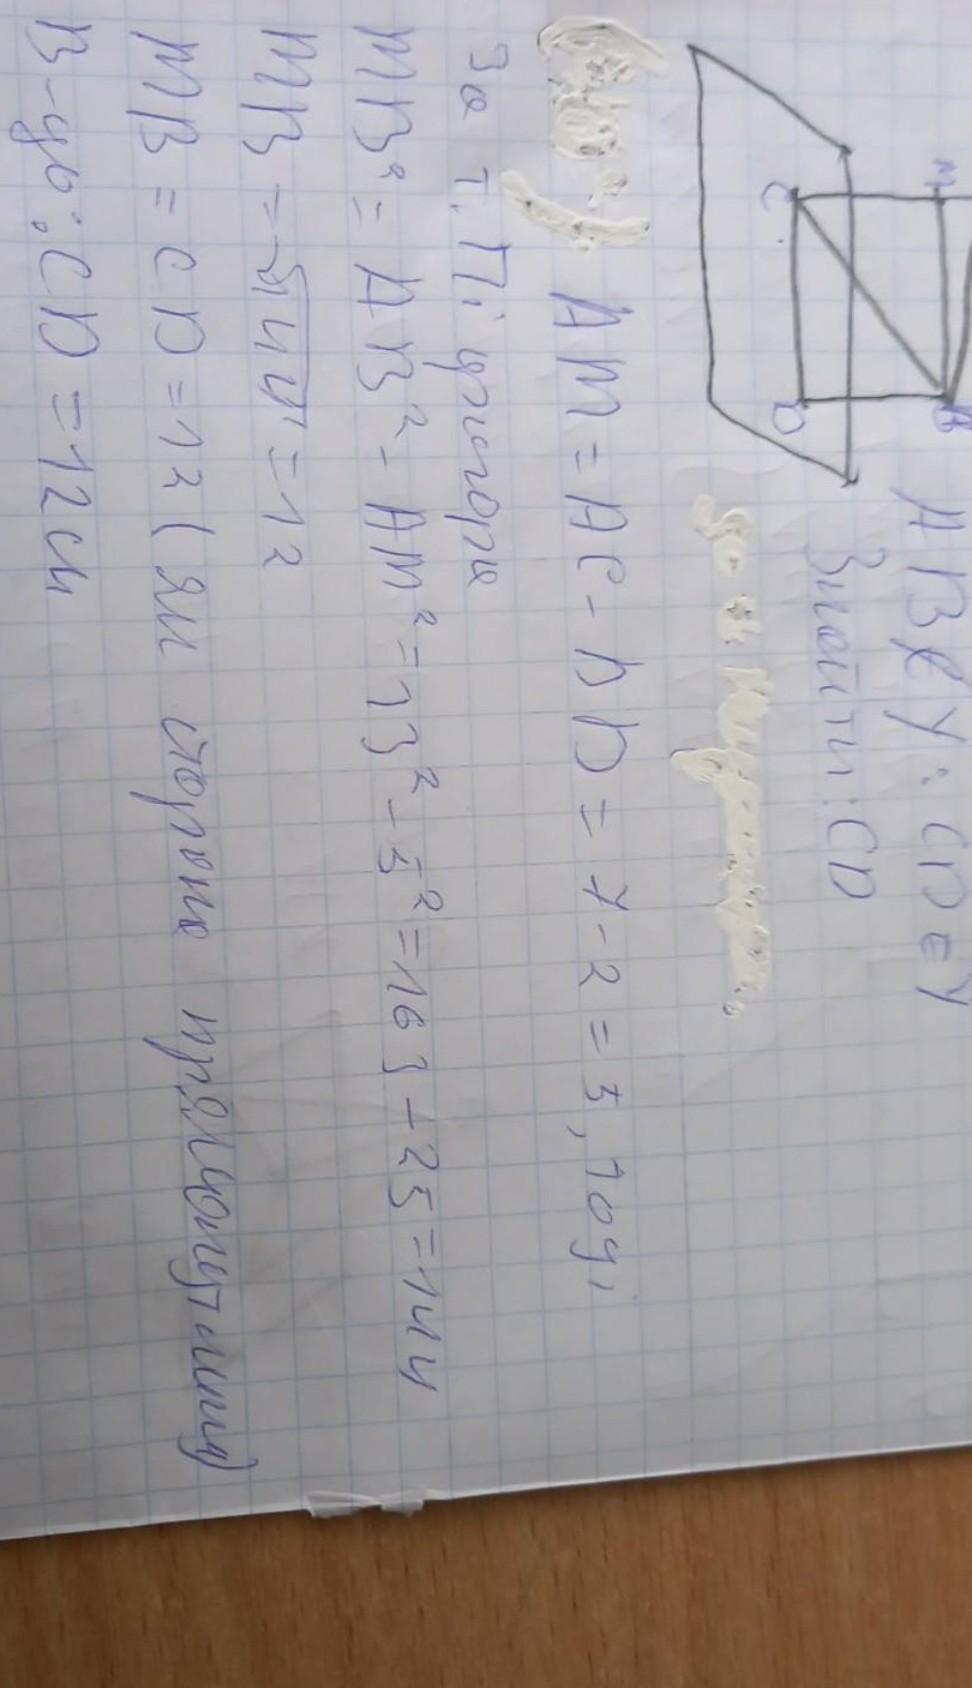 M
B
C
D
ABCγ: CD ∈ γ
Знайти: CD
AM = AC - BD = 7 - 2 = 5, тоді
За т. Піфагора
MB² = AB² - AM² = 13² - 5² = 169 - 25 = 144
MB = √144 = 12
MB = CD = 12 (як сторони прямокутника)
В-дь: CD = 12 см